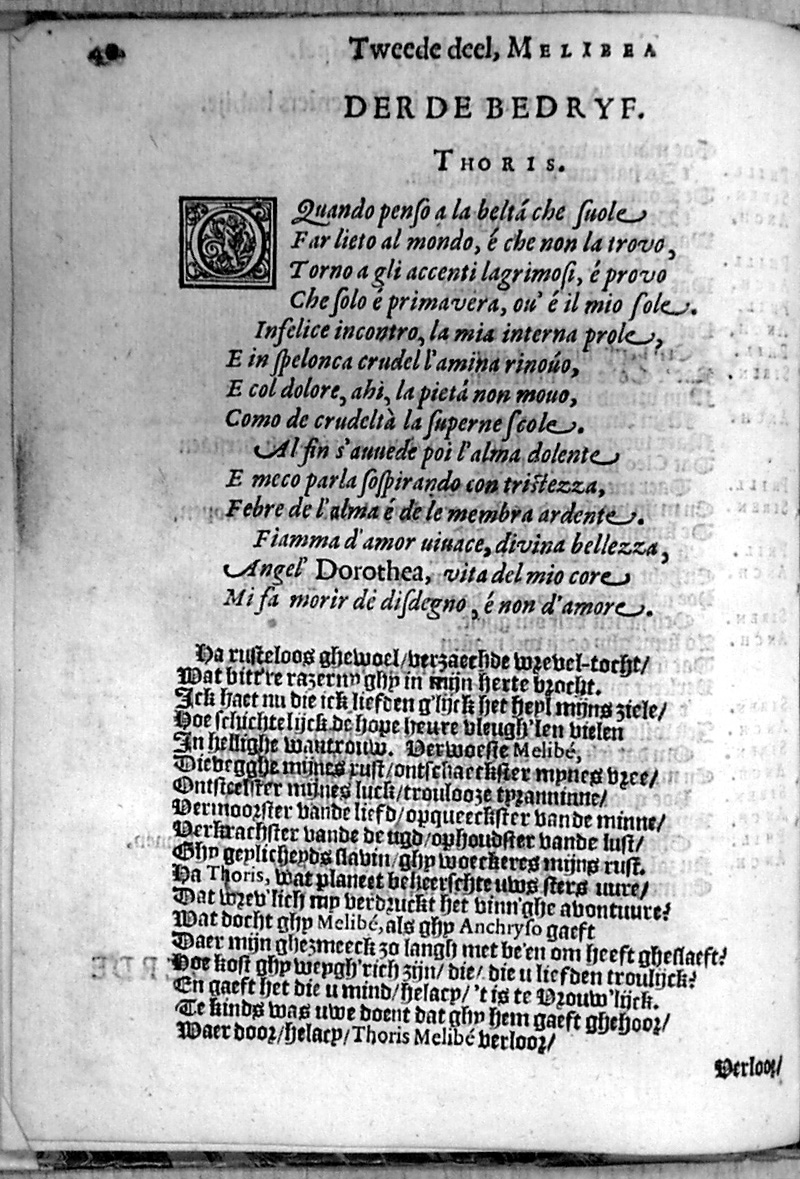 40
Tweede deel, MELIBEA
DERDE BEDRYF.
THORIS.
QUando penso a la beltá che suole
Far lieto al mondo, é che non la trovo,
Torno a gli accenti lagrimosi, é provo
Che solo é primavera, ou' é il mio sole.
Infelice incontro, la mia interna prole,
E in spelonca crudel l'amina rinoúo,
E col dolore, ahi, la pietá non mouo,
Como de crudeltà la superne scole.
Al fin s'auuede poi l'alma dolente
E meco parla sospirando con tristezza,
Febre de l'alma é de le membra ardente.
Fiamma d'amor uiuace, divina bellezza,
Angel' Dorothea, vita del mio core
Mi fa morir de disdegno, é non d'amore.
Ha rusteloos ghewoel/ verzaechde wrevel-tocht/
Wat bitt're razerny ghy in mijn herte brocht.
Ick haet nu die ick liefden g'lijck het heyl mijns ziele/
Hoe schichtelijck de hope heure vleugh'len vielen
In hellighe wantrouw. Verwoeste Melibé,
Dievegghe mijnes rust/ ontschaeckster mynes vree/
Ontsteelster mijnes luck/ troulooze tyranninne/
Vermoorster vande liefd/ opqueeckster vande minne/
Verkrachster vande deugd/ ophoudster vande lust/
Ghy geylicheyds slavin/ ghy woeckeres mijns rust.
Ha Thoris, wat planeet beheerschte uws sters uure/
Dat wrev'lich my verdruckt het vinn'ghe avontuure?
Wat docht ghy Melibé, als ghy Anchryso gaeft
Daer mijn ghezmeeck zo langh met be'en om heeft gheslaeft?
Hoe kost ghy weygh'rich zijn/ die/ die u liefden troulijck?
En gaeft het die u mind/ helacy/ 't is te Vrouw'lijck.
Te kinds was uwe doent dat ghy hem gaeft ghehoor/
Waer door/ helacy/ Thoris Melibé verloor/
Verloor/